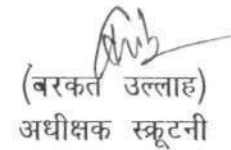 (बरकत उल्लाह)
अधीक्षक स्क्रूटनी